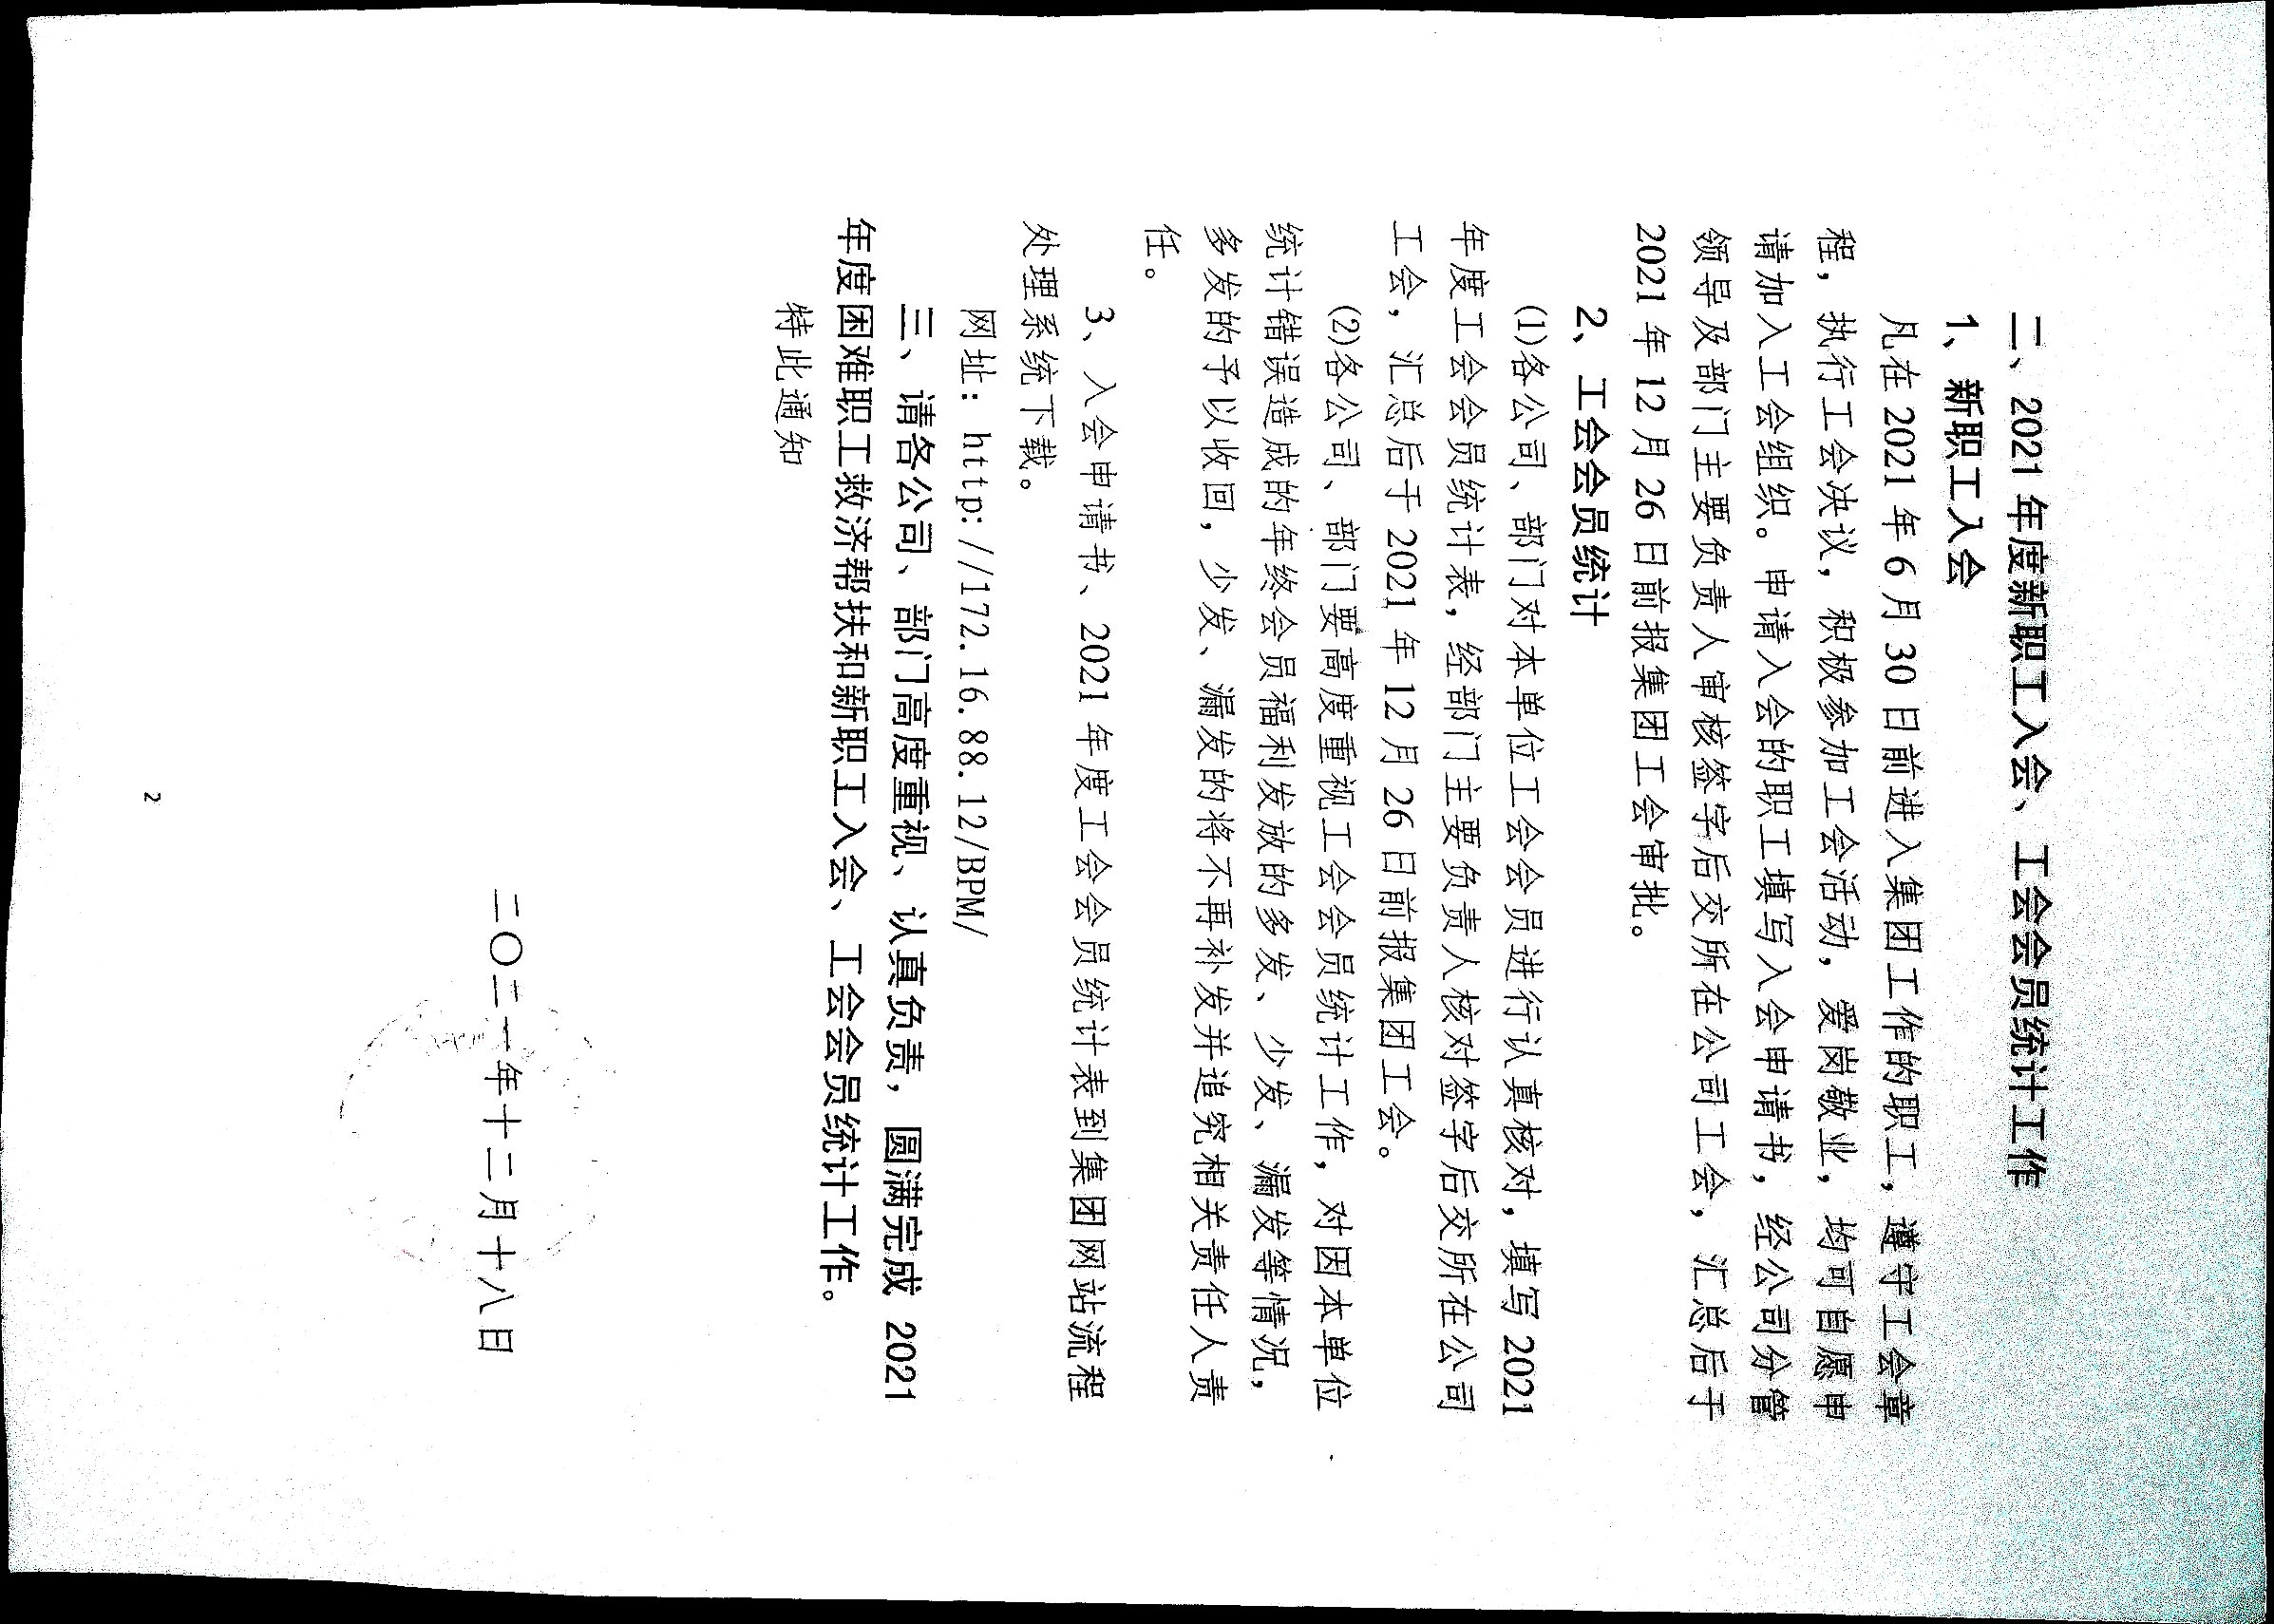 二、2021 年度新职工入会、工会会员统计工作
1、新职工入会
凡在 2021 年 6 月 30 日前进入集团工作的职工，遵守工会章
程，执行工会决议，积极参加工会活动，爱岗敬业，均可自愿申
请加入工会组织。申请入会的职工填写入会申请书，经公司分管
领导及部门主要负责人审核签字后交所在公司工会，汇总后于
2021 年 12 月 26 日前报集团工会审批。
2、工会会员统计
(1)各公司、部门对本单位工会会员进行认真核对，填写 2021
年度工会会员统计表，经部门主要负责人核对签字后交所在公司
工会，汇总后于 2021 年 12 月 26 日前报集团工会。
(2)各公司、部门要高度重视工会会员统计工作，对因本单位
统计错误造成的年终会员福利发放的多发、少发、漏发等情况，
多发的予以收回，少发、漏发的将不再补发并追究相关责任人责
任。
3、入会申请书、2021 年度工会会员统计表到集团网站流程
处理系统下载。
网址：http://172.16.88.12/BPM/
三、请各公司、部门高度重视、认真负责，圆满完成 2021
年度困难职工救济帮扶和新职工入会、工会会员统计工作。
特此通知
二〇二一年十二月十八日
2